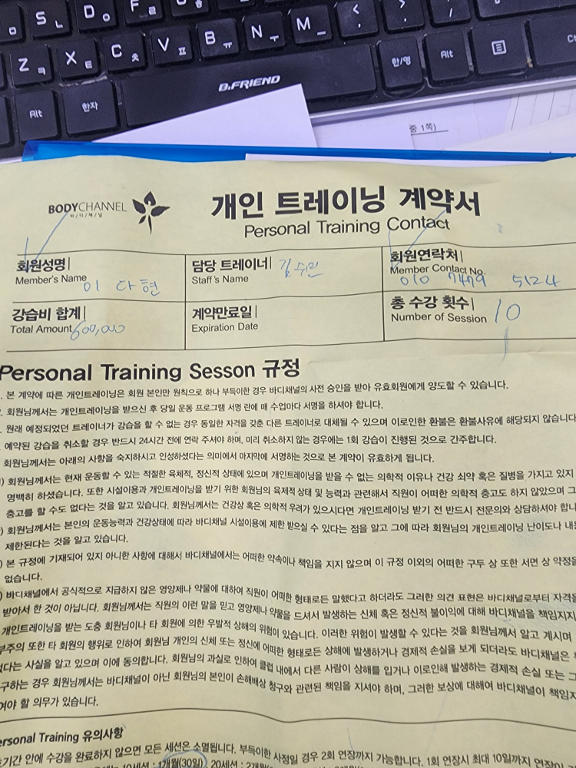 S ㄴ D ㅇ
Z ㅋ X ㅌ C ㅊ V ㅍ B ㅠ N ㅜ M ㅡ < , > . /
Alt 한자 B.FRIEND 한/영 Alt
중 1쪽)
BODYCHANNEL
바/디/채/널
개인 트레이닝 계약서
Personal Training Contact
회원성명 담당 트레이너 김수민 회원연락처
Member's Name 이다현 Staff's Name Member Contact No. 010 7479 5124
강습비 합계 계약만료일 총 수강 횟수
Total Amount 600,000 Expiration Date Number of Session 10
Personal Training Sesson 규정
. 본 계약에 따른 개인트레이닝은 회원 본인만 원칙으로 하나 부득이한 경우 바디채널의 사전 승인을 받아 유효회원에게 양도할 수 있습니다.
. 회원님께서는 개인트레이닝을 받으신 후 당일 운동 프로그램 서명 란에 매 수업마다 서명을 하셔야 합니다.
. 원래 예정되었던 트레이너가 강습을 할 수 없는 경우 동일한 자격을 갖춘 다른 트레이너로 대체될 수 있으며 이로인한 환불은 환불사유에 해당되지 않습니다
. 예약된 강습을 취소할 경우 반드시 24시간 전에 연락 주셔야 하며, 미리 취소하지 않는 경우에는 1회 강습이 진행된 것으로 간주합니다.
회원님께서는 아래의 사항을 숙지하시고 인성하셨다는 의미에서 마지막에 서명하는 것으로 본 계약이 유효하게 됩니다.
) 회원님께서는 현재 운동할 수 있는 적절한 육체적, 정신적 상태에 있으며 개인트레이닝을 받을 수 없는 의학적 이유나 건강 쇠약 혹은 질병을 가지고 있지
명백히 하셨습니다. 또한 시설이용과 개인트레이닝을 받기 위한 회원님의 육체적 상태 및 능력과 관련해서 직원이 어떠한 의학적 충고도 하지 않았으며 그
충고를 할 수도 없다는 것을 알고 있습니다. 회원님께서는 건강상 혹은 의학적 우려가 있으시다면 개인트레이닝 받기 전 반드시 전문의와 상담하셔야 합니
) 회원님께서는 본인의 운동능력과 건강상태에 따라 바디채널 시설이용에 제한 받으실 수 있다는 점을 알고 그에 따라 회원님의 개인트레이닝 난이도나 내용
제한된다는 것을 알고 있습니다.
) 본 규정에 기재되어 있지 아니한 사항에 대해서 바디채널에서는 어떠한 약속이나 책임을 지지 않으며 이 규정 이외의 어떠한 구두 상 또한 서면 상 약정을
없습니다.
) 바디채널에서 공식적으로 지급하지 않은 영양제나 약물에 대하여 직원이 어떠한 형태로든 말했다고 하더라도 그러한 의견 표현은 바디채널로부터 자격을
받아서 한 것이 아닙니다. 회원님께서는 직원의 이런 말을 믿고 영양제나 약물을 드셔서 발생하는 신체 혹은 정신적 불이익에 대해 바디채널을 책임지지
개인트레이닝을 받는 도충 회원님이나 타 회원에 의한 우발적 상해의 위험이 있습니다. 이러한 위험이 발생할 수 있다는 것을 회원님께서 알고 계시며
부주의 또한 타 회원의 행위로 인하여 회원님 개인의 신체 또는 정신에 어떠한 형태로든 상해에 발생하거나 경제적 손실을 보게 되더라도 바디채널은
다는 사실을 알고 있으며 이에 동의합니다. 회원님의 과실로 인하여 클럽 내에서 다른 사람이 상해를 입거나 이로인해 발생하는 경제적 손실 또는 그
구하는 경우 회원님께서는 바디채널이 아닌 회원님의 본인이 손해배상 청구와 관련된 책임을 지셔야 하며, 그러한 보상에 대하여 바디채널이 책임지
여야 할 의무가 있습니다.
ersonal Training 유의사항
기간 안에 수강을 완료하지 않으면 모든 세션은 소멸됩니다. 부득이한 사정일 경우 2회 연장까지 가능합니다. 1회 연장시 최대 10일까지 연장이
10세션 : 1개월(30일) 20세션 : 2개월